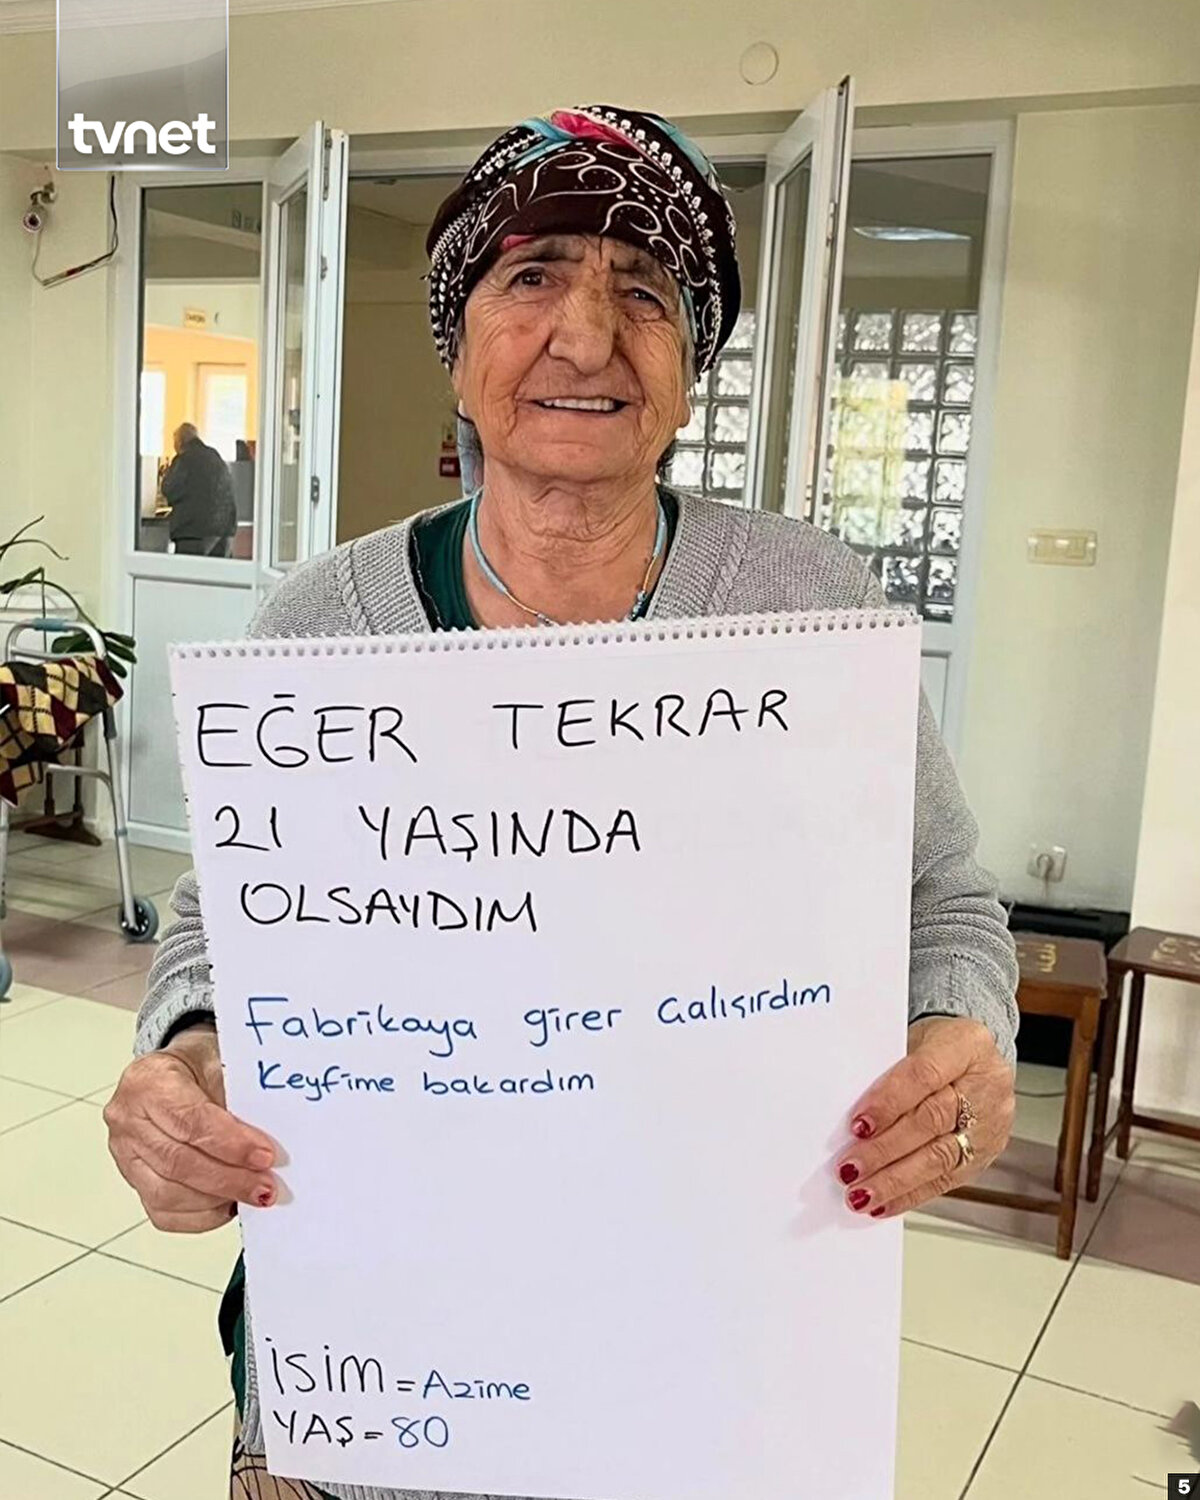 tvnet
EĞER TEKRAR
21 YAŞINDA
OLSAYDIM
Fabrikaya girer çalışırdım
Keyfime bakardım
İSİM = Azime
YAŞ = 80
5